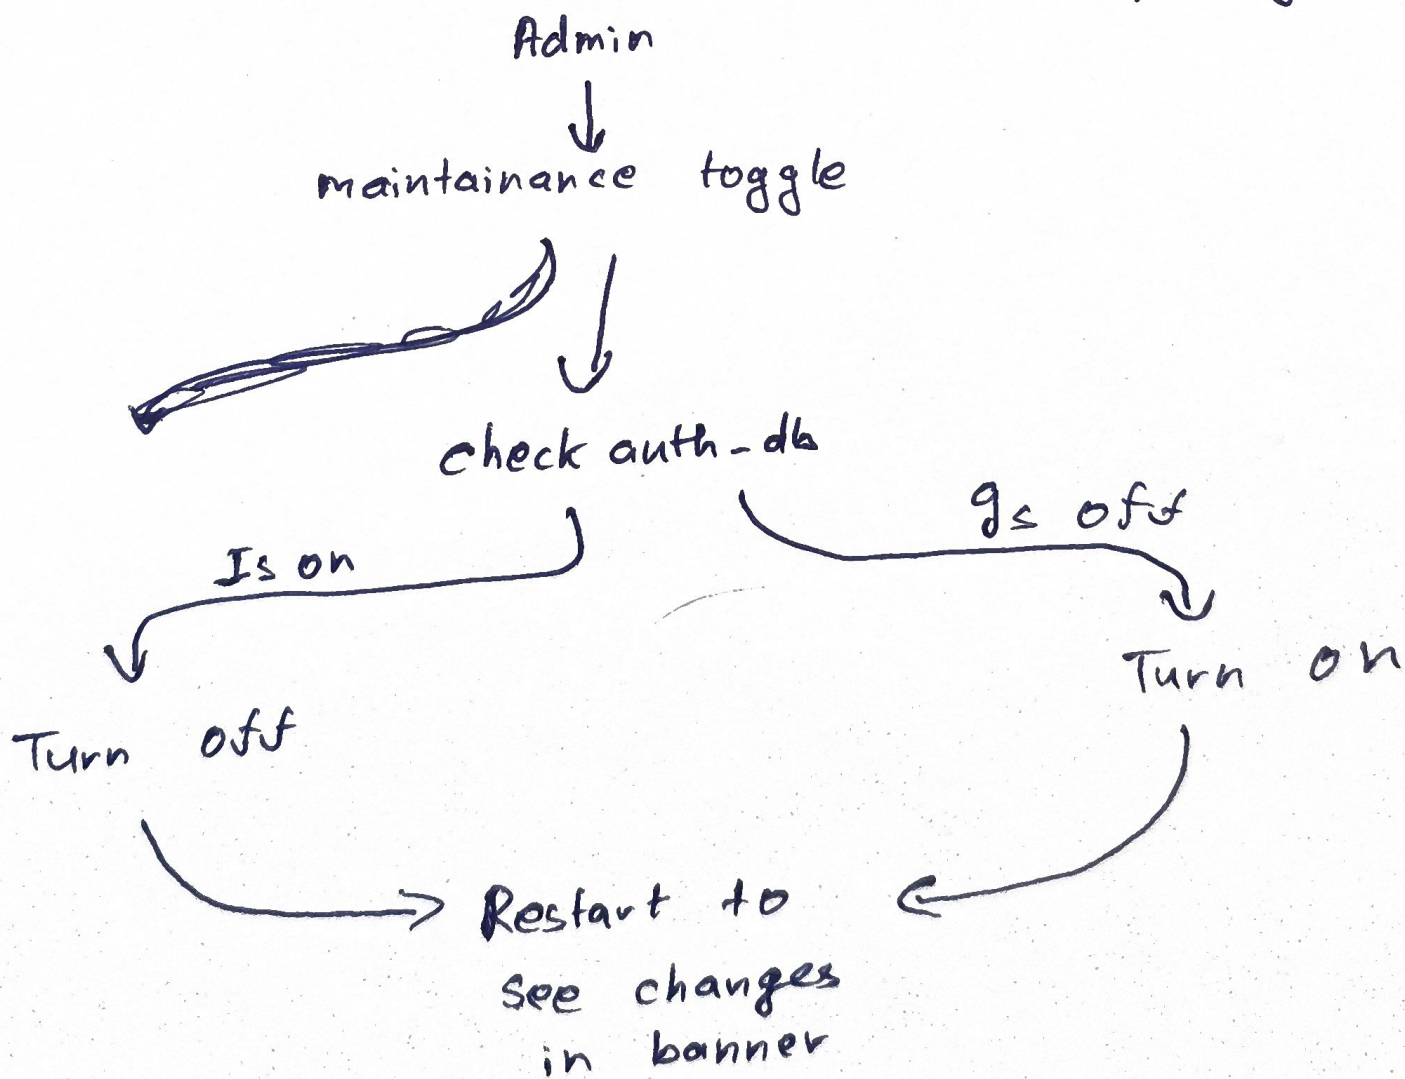 Admin
maintainance toggle
check auth-db
Is on
Is off
Turn on
Turn off
Restart to
see changes
in banner